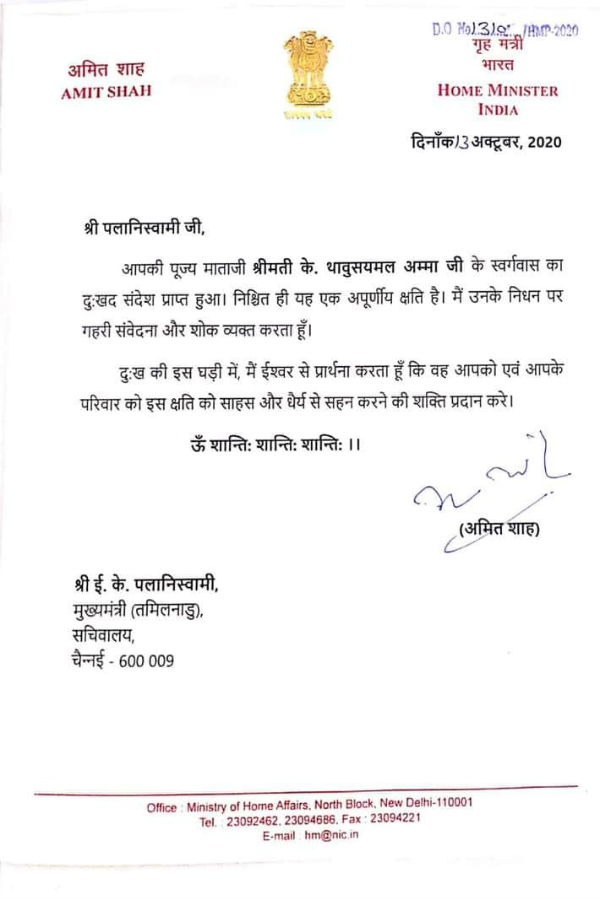 D.O No. /HMP-2020
अमित शाह
AMIT SHAH
गृह मंत्री
भारत
HOME MINISTER
INDIA
दिनाँक 13 अक्टूबर, 2020
श्री पलानिस्वामी जी,
आपकी पूज्य माताजी श्रीमती के. थावुसयमल अम्मा जी के स्वर्गवास का
दुःखद संदेश प्राप्त हुआ। निश्चित ही यह एक अपूर्णीय क्षति है। मैं उनके निधन पर
गहरी संवेदना और शोक व्यक्त करता हूँ।
दुःख की इस घड़ी में, मैं ईश्वर से प्रार्थना करता हूँ कि वह आपको एवं आपके
परिवार को इस क्षति को साहस और धैर्य से सहन करने की शक्ति प्रदान करे।
ऊँ शान्तिः शान्तिः शान्तिः ।।
(अमित शाह)
श्री ई. के. पलानिस्वामी,
मुख्यमंत्री (तमिलनाडु),
सचिवालय,
चैन्नई - 600 009
Office : Ministry of Home Affairs, North Block, New Delhi-110001
Tel. : 23092462, 23094686, Fax : 23094221
E-mail : hm@nic.in